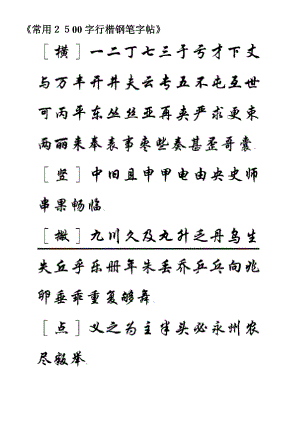 《常用２５00字行楷钢笔字帖》
[横] 一二丁七三于亏才下丈
与万丰开井夫云专五不屯互世
可丙平东丝丝亚再夹严求更束
两丽来奉表事枣些奏甚歪哥囊
[竖] 中旧且申甲电由央史师
串果畅临
[撇] 九川久及九升乏丹乌生
失丘乎乐册年朱丢乔乒乓向兆
卵垂乖重复够舞
[点] 义之为主半头必永州农
尽叛举